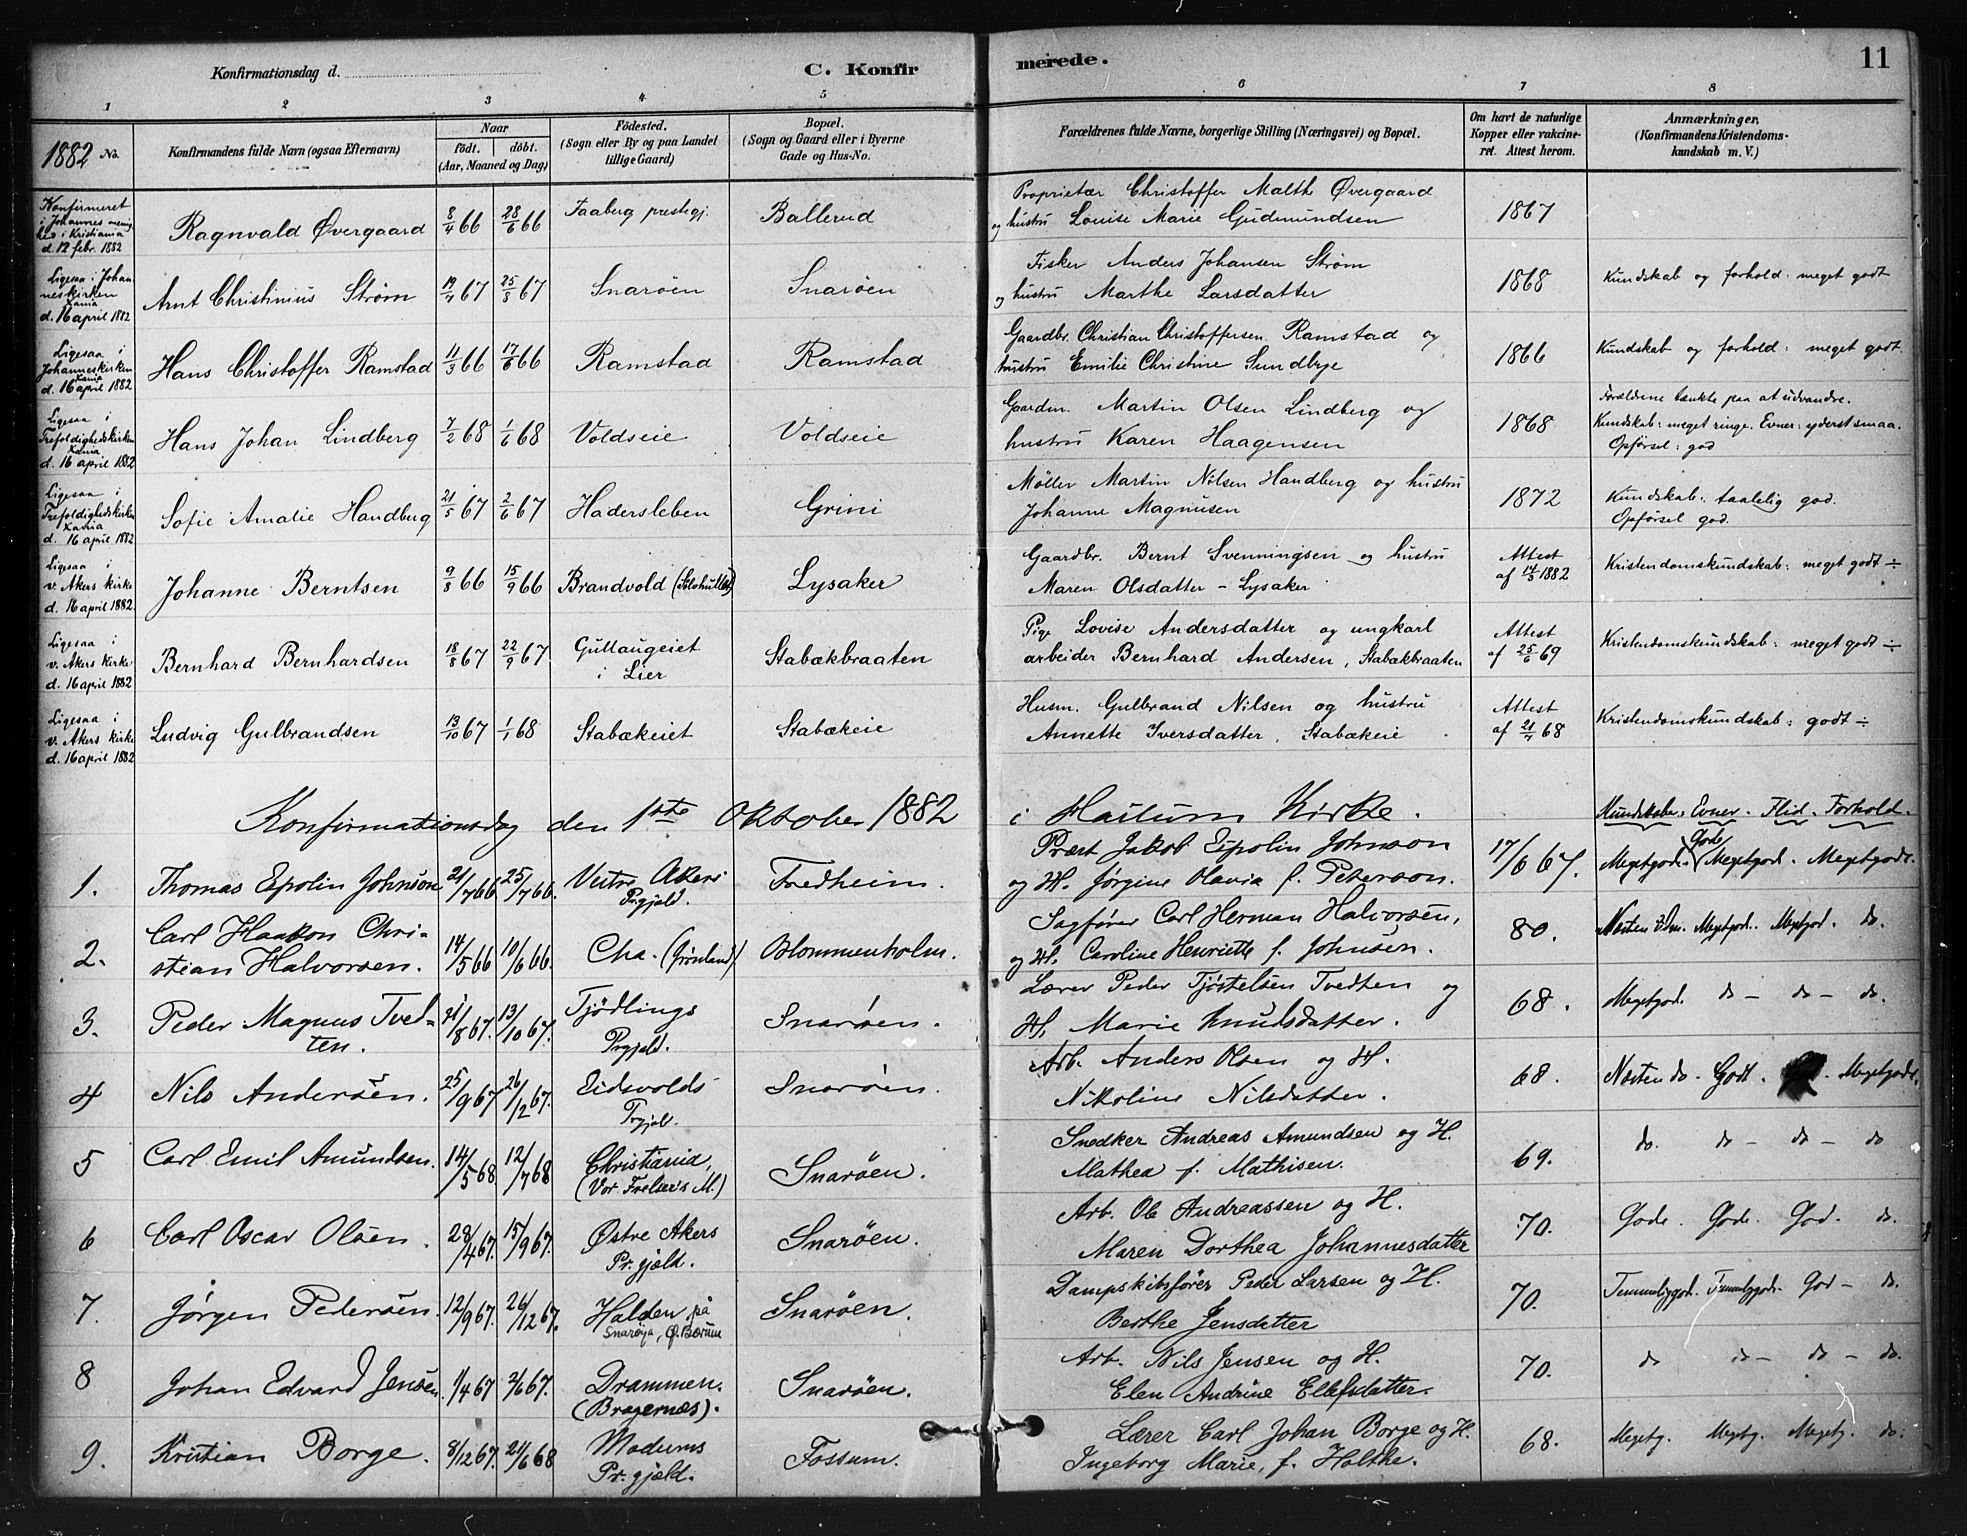 Konfirmationsdag d.
C. Konfirmerede.
11
1 2 3 4 5 6 7 8
1882 No.
Konfirmandens fulde Navn (ogsaa Efternavn)
Naar
født. døbt.
(Aar, Maaned og Dag)
Fødested.
(Sogn eller By og paa Landet
tillige Gaard)
Bopæl.
(Sogn og Gaard eller i Byerne
Gade og Hus-No.
Forældrenes fulde Navne, borgerlige Stilling (Næringsvei) og Bopæl.
Om havt de naturlige
Kopper eller vakcine-
ret. Attest herom.
Anmærkninger.
(Konfirmandens Kristendoms-
kundskab m. V.)
Konfirmeret
i Johannes menig-
hed i Kristiania
d. 12 febr. 1882
Ragnvald Øvergaard 8/4 66 28/6 66 Faaberg prestegj. Ballerud
Proprietær Christoffer Malthe Øvergaard
og hustru Louise Marie Gudmundsen
1867
Ligesaa i Johan-
neskirken
Xania
d. 16 april 1882
Arnt Christinius Strøm 19/4 67 25/8 67 Snarøen Snarøen
Fisker Anders Johansen Strøm
og hustru Marthe Larsdatter
1868
Kundskab og forhold: meget godt
Ligesaa i
Johanneskirken
Xania
d. 16 april 1882
Hans Christoffer Ramstad 11/3 66 17/6 66 Ramstad Ramstad
Gaardbr. Christian Christoffersen Ramstad og
hustru Emilie Christine Sundbye
1866
Kundskab og forhold: meget godt.
Ligesaa i
Trefoldighedskirken
Xania
d. 16 april 1882
Hans Johan Lindberg 7/2 68 1/6 68 Voldseie Voldseie
Gaardm. Martin Olsen Lindberg og
hustru Karen Haagensen
1868
Forældrene tænkte paa at udvandre.
Kundskab: meget ringe. Evner: yderst smaa.
Opførsel: god
Ligesaa i
Trefoldighedskirken
Xania
d. 16 april 1882
Sofie Amalie Handberg 21/5 67 2/6 67 Hadersleben Grini
Møller Martin Nilsen Handberg og hustru
Johanne Magnusen
1872
Kundskab: taalelig god.
Opførsel god.
Ligesaa i
v. Akers kirke
d. 16 april 1882
Johanne Berntsen 9/8 66 15/9 66 Brandvold Lysaker
Gaardbr. Bernt Svenningsen og hustru
Maren Olsdatter - Lysaker
Attest
af 14/3 1882
Kristendomskundskab: meget godt ÷
Ligesaa i
v. Akers Kirke
d. 16 april 1882
Bernhard Bernhardsen 18/8 67 22/9 67 Gullaugeiet
i Lier
Stabækbraaten
Pige Lovise Andersdatter og ungkarl
arbeider Bernhard Andersen, Stabækbraaten
Attest
af 25/6 69
Kristendomskundskab: meget godt ÷
Ligesaa i
v. Akers kirke
d. 16 april 1882
Ludvig Gulbrandsen 13/10 67 1/1 68 Stabækeiet Stabækeie
Husm. Gulbrand Nilsen og hustru
Annette Iversdatter, Stabækeie
Attest
af 21/7 68
Kristendomskundskab: godt ÷
Konfirmationsdag den 1ste Oktober 1882 i Haslum Kirke.
Kundskaber. Evner. Flid. Forhold.
1. Thomas Epolin Johnson 21/7 66 25/7 66. Vestre Akers
Pr.gjeld.
Fredheim.
Præst Jakob Eipolin Johnson
og H. Jørgine Olavia f. Peterson.
17/6 67.
Megetgode. Gode Megetgod. Megetgodt.
2. Carl Haakon Chri-
stian Halvorsen. 14/5 66 10/6 66. Cha. (Grønland) Blommenholm.
Sagfører Carl Herman Halvorsen,
og H. Caroline Henriette f. Johnsen.
80.
Næsten do. Megetgod. Megetgod. do.
3. Peder Magnus Tved-
ten. 21/8 67. 13/10 67. Tjødlings
Prgjeld.
Snarøen.
Lærer Peder Tjøstelsen Tvedten og
H. Marie Knudsdatter.
68.
Megetgod. do - do - do.
4 Nils Andersen. 25/9 67 26/12 67. Eidsvolds
Prgjeld.
Snarøen.
Arb. Anders Olsen og H.
Nikoline Nilsdatter.
68.
Næsten do. Godt. Megetgodt.
5 Carl Emil Amundsen. 14/5 68 12/7 68 Christiania,
(Vor Frelser's M.)
Snarøen.
Snedker Andreas Amundsen og H.
Mathea f. Mathisen.
69.
do. do - do - do
6 Carl Oscar Olsen. 28/4 67. 15/9 67. Østre Akers
Pr.gjæld.
Snarøen.
Arb. Ole Andreassen og H.
Maren Dorthea Johannesdatter
70.
Gode. Gode. God. do.
7. Jørgen Pedersen. 12/9 67. 26/12 67. Halden på
Snarøya, Ø. Bærum
Snarøen.
Dampskibsfører Peder Larsen og H.
Berthe Jensdatter
70.
Temmeliggod. Temmeliggod. God - do.
8 Johan Edvard Jensen. 1/4 67 2/6 67. Drammen.
(Bragernæs).
Snarøen.
Arb. Nils Jensen og H.
Elen Andrine Ellefsdatter.
70.
do do - do - do.
9. Kristian Borge. 8/12 67. 21/6 68 Modums
Pr.gjæld.
Fossum.
Lærer Carl Johan Borge og H.
Ingeborg Marie, f. Holthe.
68.
Megetg. Megetg. Megetg. do.